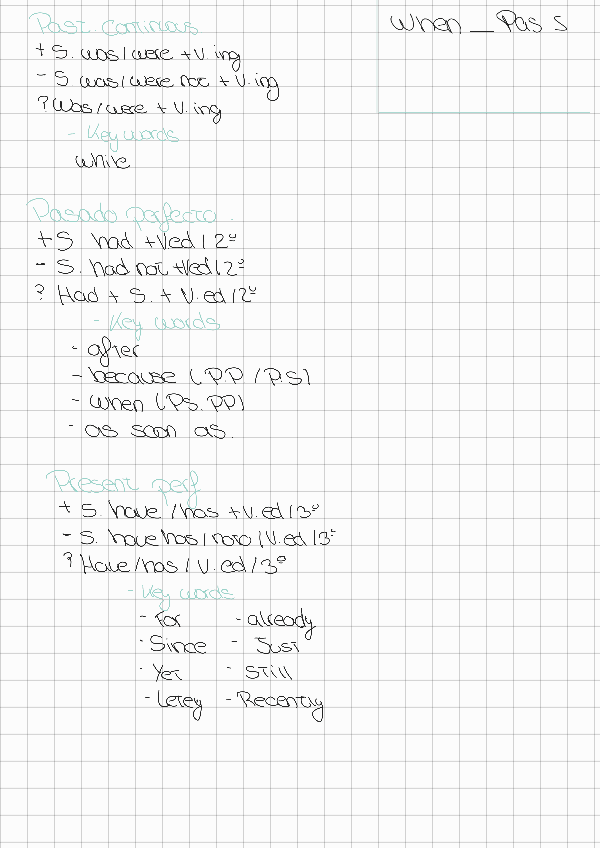 Past. Continous
When _ Pas S
+ S. was/were + V. ing
- S was/were not + V. ing
? Was/were + V. ing
- Key words
while
Pasado perfecto.
+ S had + Ved / 2º
- S. had not + Ved / 2º
? Had + S. + V. ed / 2º
- Key words
- after
- because (P.P / P.S)
- when (Ps. PP)
- as soon as.
Present perf
+ S. have / has + V. ed / 3º
- S. have has / noto / V. ed / 3º
? Have / has / V. ed / 3º
- Key words
- For - already
- Since - Just
- Yet - Still
- Letey - Recently